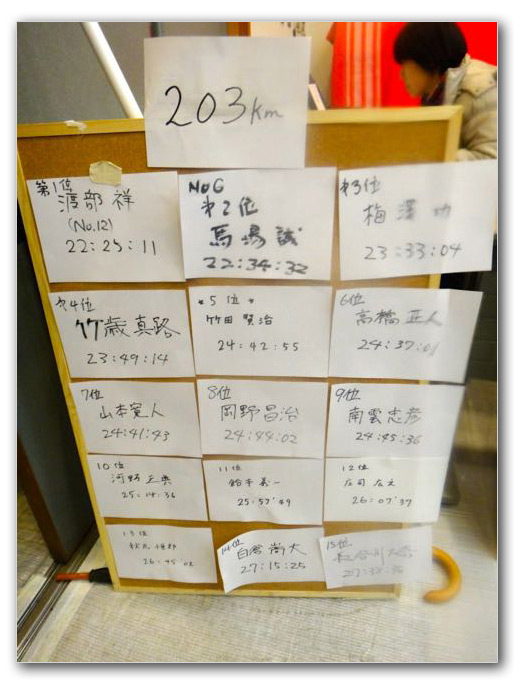 203km
第1位
渡部 祥
(No.12)
22:25:11
No6
第2位
馬場 誠
22:34:32
第3位
梅澤 功
23:33:04
第4位
竹歳 真路
23:49:14
*5位*
竹田 賢治
24:42:55
6位
高橋 正人
24:37:01
7位
山本 寛人
24:41:43
8位
岡野 昌治
24:44:02
9位
南雲 忠彦
24:45:36
10位
河野
25:14:36
11位
鈴木 義一
25:57'49
12位
庄司
26:07'37
13位
26:45'02
14位
白倉 尚大
27:15:25
15位
長谷川